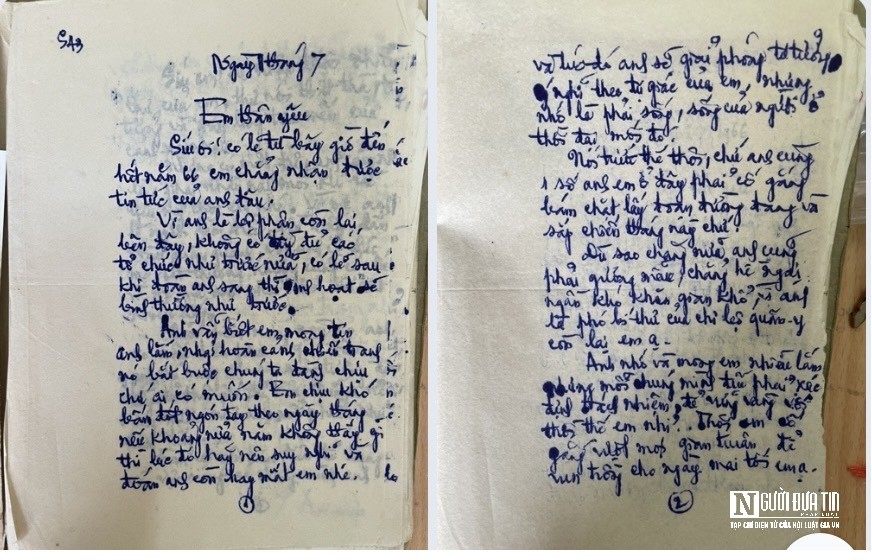 SA3
Ngày 7 tháng 7
Em thân yêu
Siu ơi! có lẽ từ bây giờ đến
hết năm 66 em chẳng nhận được
tin tức của anh đâu.
Vì anh là bộ phận còn lại,
bên đây, không có đầy đủ các
tổ chức như trước nữa, có lẽ sau
khi đoàn anh sang thì sinh hoạt sẽ
bình thường như trước.
Anh vẫn biết em mong tin
anh lắm, nhưng hoàn cảnh chiến tranh
nó bắt buộc chúng ta đành chịu
chứ ai có muốn. Em chịu khó
bấm đốt ngón tay theo ngày tháng
nếu khoảng nửa năm không thấy gì
thì lúc đó hãy nên suy nghĩ và
đoán anh còn hay mất em nhé.
1
và lúc đó anh sẽ giải phóng tư tưởng
nghĩ theo tự giác của em, nhưng
nhớ là phải sống, sống của người ở
thời đại mới đó.
Nói trước thế thôi, chứ anh cùng
1 số anh em ở đây phải cố gắng
bám chắt lấy đoạn đường đang và
sắp chiến thắng này chứ.
Dù sao chăng nữa, anh cũng
phải gương mẫu, chẳng hề ngại
ngần khó khăn gian khổ, vì anh
là phó bí thư của chi bộ quân-y
còn lại em ạ.
Anh nhớ và mong em nhiều lắm
nhưng mỗi chúng mình đều phải xác
định trách nhiệm, rõ ràng
như thế em nhỉ. Thôi em cố
gắng vượt mọi gian truân để
vun trồng cho ngày mai tốt em ạ.
2
NGƯỜI ĐƯA TIN
PHÁP LUẬT
TẠP CHÍ ĐIỆN TỬ CỦA HỘI LUẬT GIA VN